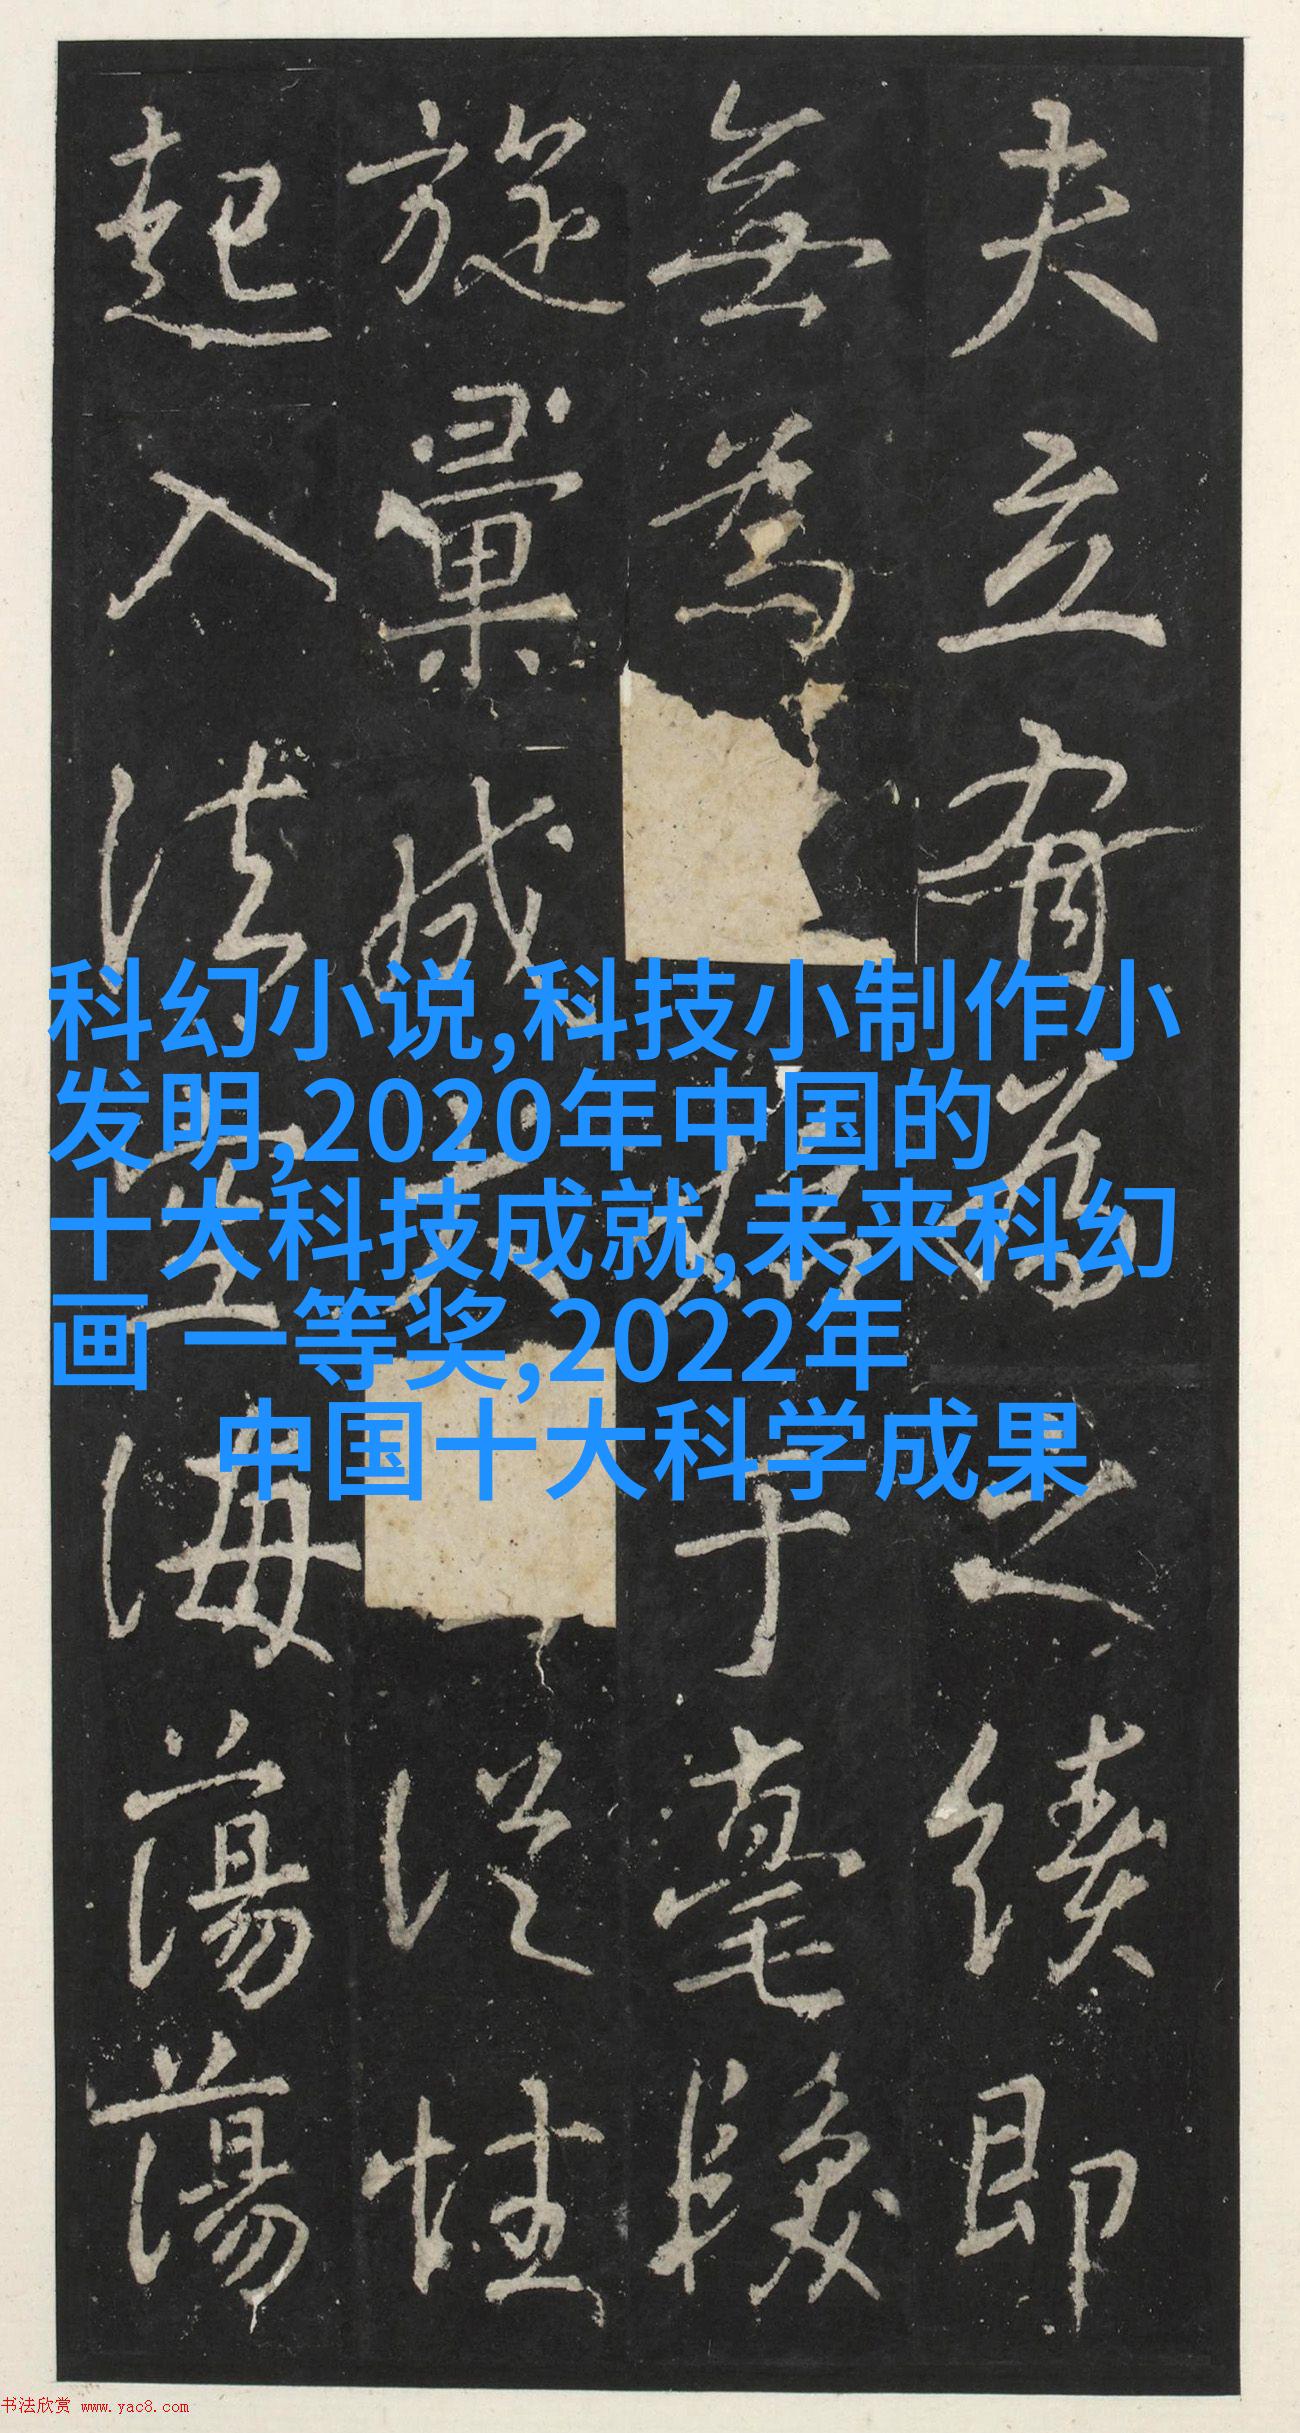 夫立有為之績即
無為于毫
旋彙成從性
起入法空海蕩蕩
科幻小说,科技小制作小
发明,2020年中国的
十大科技成就,未来科幻
画 一等奖,2022年
中国十大科学成果
书法欣赏 www.yac8.com